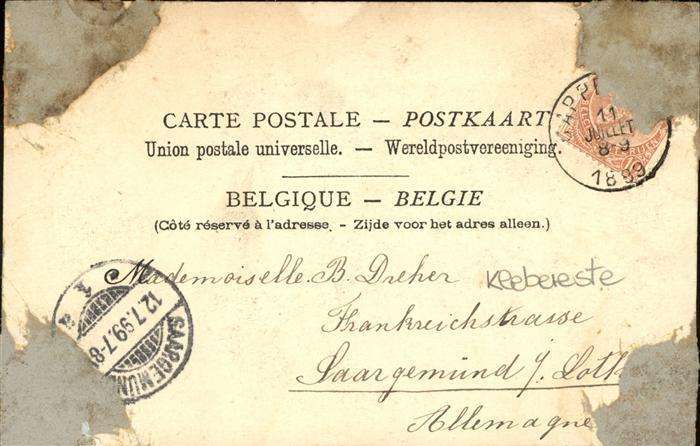 CARTE POSTALE — POSTKAART
Union postale universelle. — Wereldpostvereeniging.
BELGIQUE — BELGIE
(Côté réservé à l'adresse. - Zijde voor het adres alleen.)
11
JUILLET
8-9
1899
Mademoiselle B. Dreher
Klebereste
Frankreichstrasse
Saargemünd j/. Loth
Allemagne
SAARGEMÜN
12.7.99.7-8